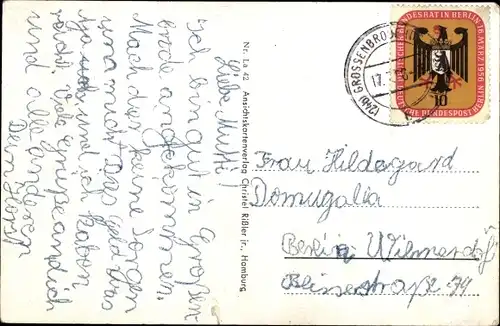 Liebe Mutti!
Ich bin gut in Großen-
brode angekommen.
Mach dir keine Sorgen
um mich. Das Geld was
Du und ich haben
reicht. Viele Grüße an dich
und alle anderen
Dein Horst
Nr. La 42 Ansichtskartenverlag Christel Rißler jr., Hamburg
(24b) GROSSENBRODE
17.
DEUTSCHER BUNDESRAT IN BERLIN 16. MÄRZ 1956
10
DEUTSCHE BUNDESPOST BERLIN
Frau Hildegard
Domugalla
Berlin Wilmersdorf
Blissestraße 74